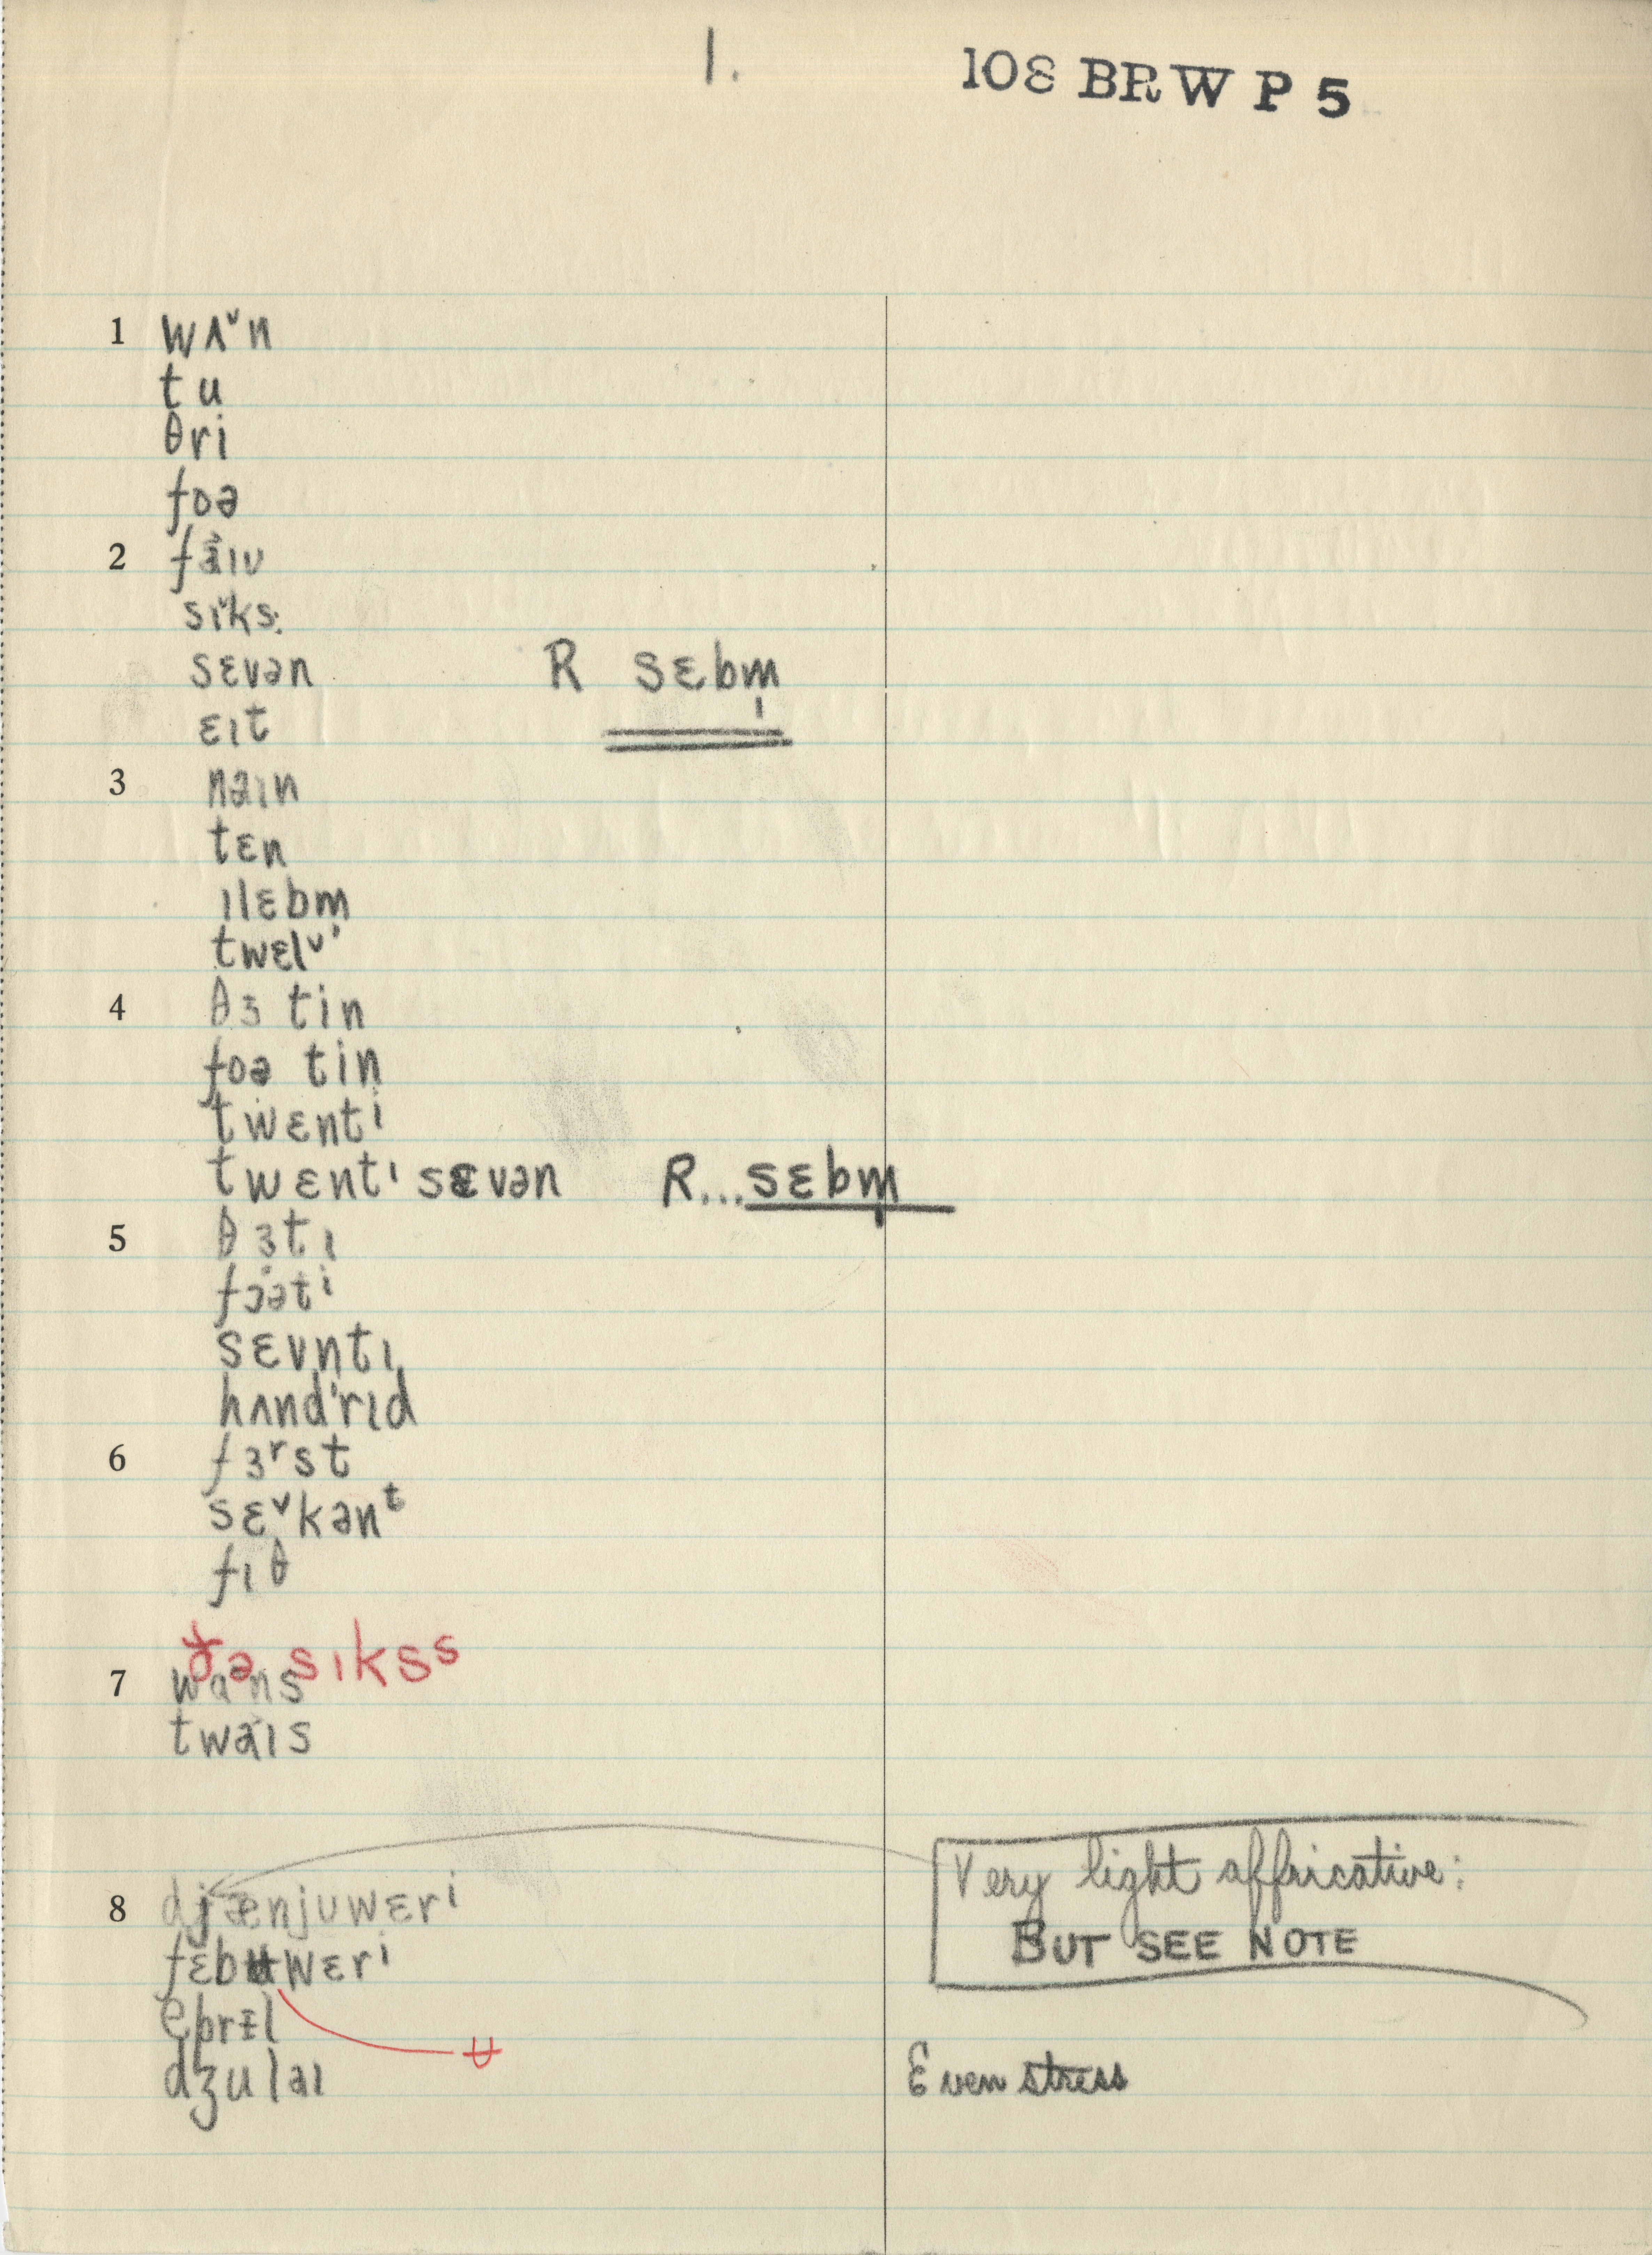 1. 108 BRW P 5
1 wʌ˅n
tu
θri
foə
2 fa̛ɪv
sɪ˅ks.
sɛvən R sɛbm̩
ɛɪt
3 naɪn
tɛn
ɪlɛbm
twɛlᵛ'
4 θɜ tin
foə tin
twɛntⁱ
twɛntᶦ sɛvən R...sɛbm̩
5 θɜtɪ
fɔətⁱ
sɛvntɪ
hʌnd'rɪd
6 fɜʳst
sɛ˅kənᵗ
fɪθ
ðə sɪksˢ
7 wans
twaɪs
8 djænjuwɛrⁱ Very light affricative:
fɛbʉwɛrⁱ BUT SEE NOTE
eprɪl ʉ
dʒulaɪ Even stress